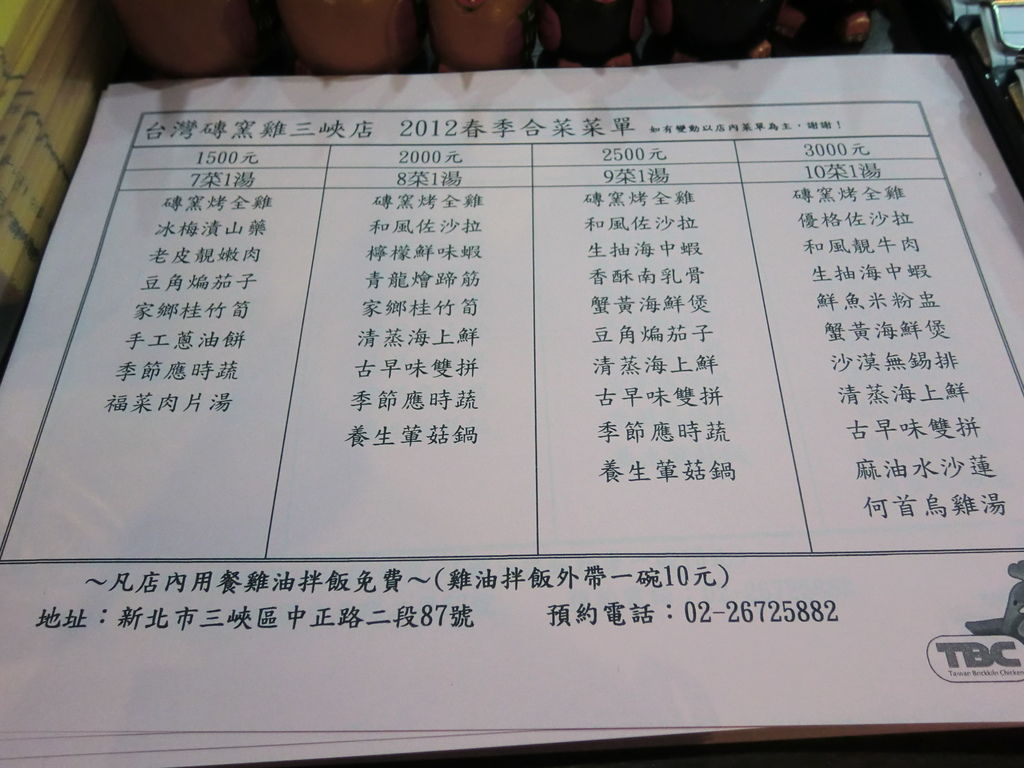 台灣磚窯雞三峽店 2012春季合菜菜單 如有變動以店內菜單為主，謝謝！
1500元 2000元 2500元 3000元
7菜1湯 8菜1湯 9菜1湯 10菜1湯
磚窯烤全雞 磚窯烤全雞 磚窯烤全雞 磚窯烤全雞
冰梅漬山藥 和風佐沙拉 和風佐沙拉 優格佐沙拉
老皮靚嫩肉 檸檬鮮味蝦 生抽海中蝦 和風靚牛肉
豆角煸茄子 青龍燴蹄筋 香酥南乳骨 生抽海中蝦
家鄉桂竹筍 家鄉桂竹筍 蟹黃海鮮煲 鮮魚米粉盅
手工蔥油餅 清蒸海上鮮 豆角煸茄子 蟹黃海鮮煲
季節應時蔬 古早味雙拼 清蒸海上鮮 沙漠無錫排
福菜肉片湯 季節應時蔬 古早味雙拼 清蒸海上鮮
養生蕈菇鍋 季節應時蔬 古早味雙拼
養生蕈菇鍋 麻油水沙蓮
何首烏雞湯
～凡店內用餐雞油拌飯免費～(雞油拌飯外帶一碗10元)
地址：新北市三峽區中正路二段87號 預約電話：02-26725882
TBC
Taiwan Brickkiln Chicken